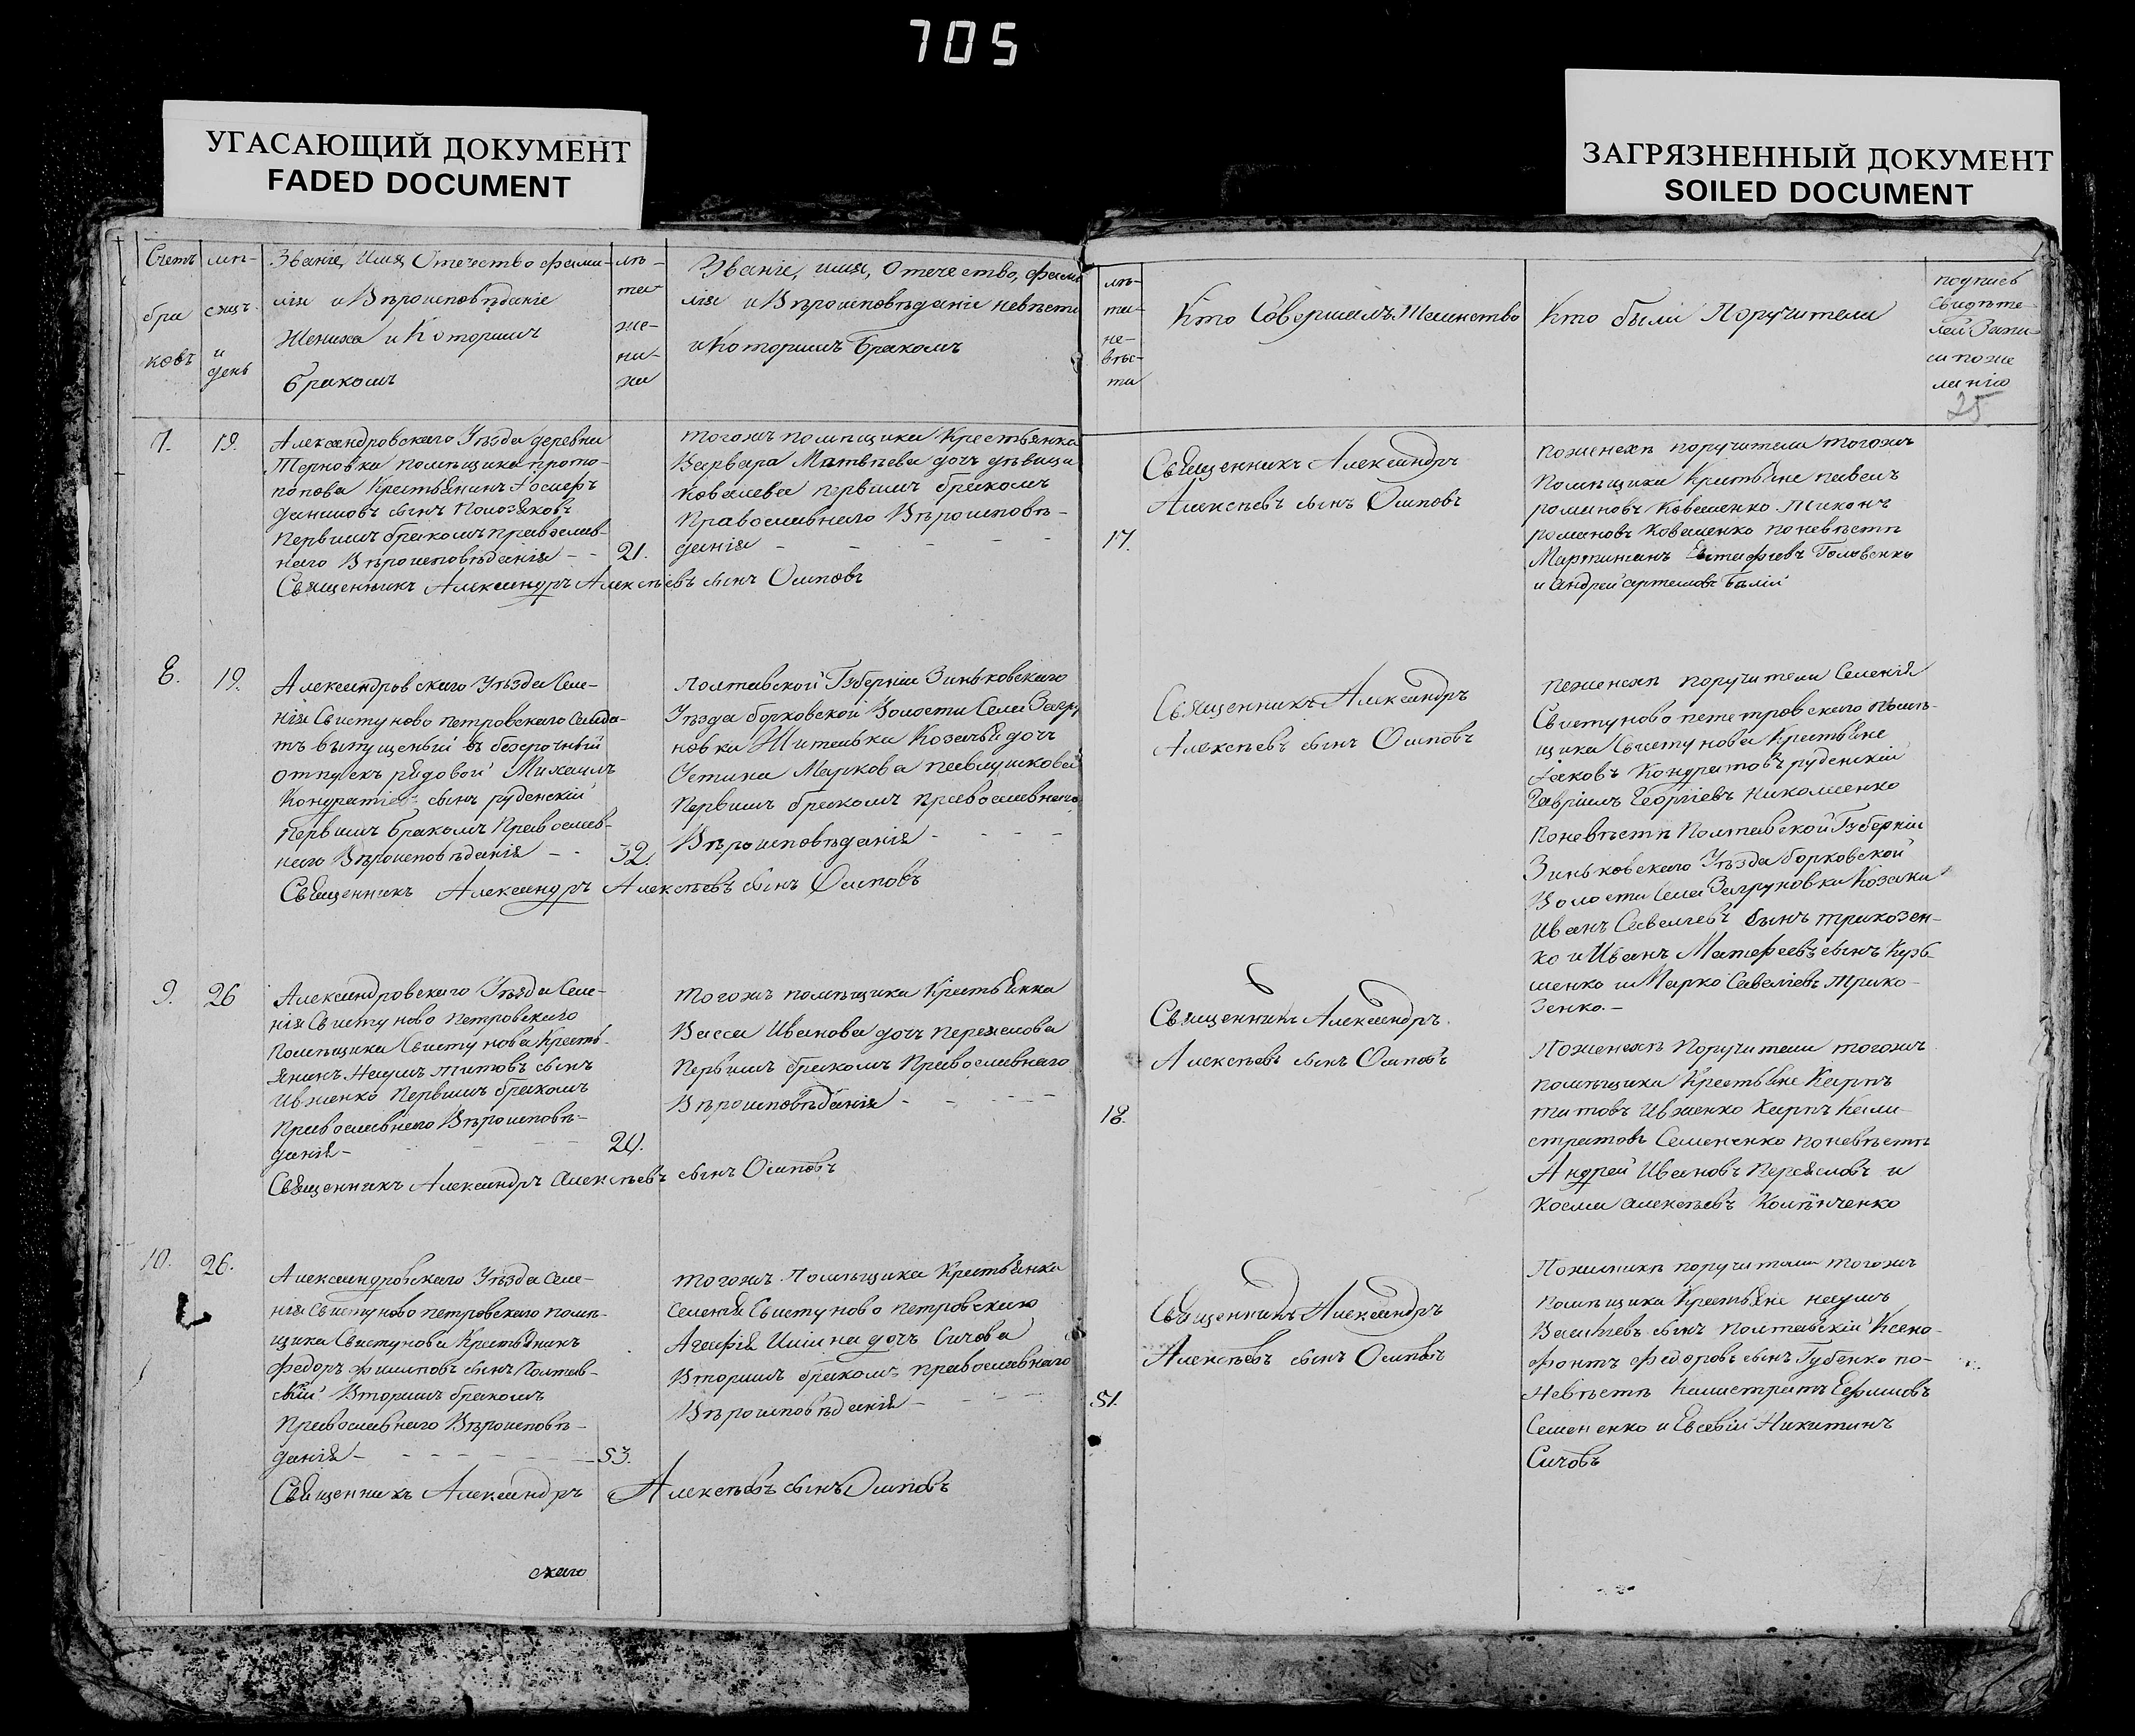 705
УГАСАЮЩИЙ ДОКУМЕНТ
FADED DOCUMENT
ЗАГРЯЗНЕННЫЙ ДОКУМЕНТ
SOILED DOCUMENT
Счетъ
бра
ковъ
мѣ-
сяцъ
и
день
Званіе, Имя, Отечество фами-
лія и Вѣроисповѣданіе
Жениха и Которимъ
бракомъ
лѣ-
та
же-
ни-
ха
Званіе, имя, Отечество, фами
лія и Вѣроисповѣданіе невѣсти
и Которимъ бракомъ
лѣ-
та
не-
вѣс-
ты
Кто Совершалъ Таинство
Кто были Поручители
подпись
Свидѣте-
лей Запи-
си по же
ланію
25
7.
19.
Александровскаго Уѣзда деревни
Терновки помѣщика прото-
попова Крестьянинъ
Даниловъ сынъ
Первимъ бракомъ православ-
наго Вѣроисповѣданія - -
21.
Священникъ Александръ Алексѣевъ сынъ Осиповъ
тогожъ помѣщика Крестьянка
Варвара Матвѣева дочь дѣвица
Ковалева первимъ бракомъ
Православнаго Вѣроисповѣ-
данія - - - - -
17.
Священникъ Александръ
Алексѣевъ сынъ Осиповъ
по женихѣ поручители тогожъ
Помѣщика Крестьяне павелъ
романовъ Коваленко Тихонъ
романовъ Коваленко по невѣстѣ
Мартиніанъ Евстафіевъ Головенко
и андрей артемовъ Балій
8.
19.
Александровскаго Уѣзда Селе-
нія Свистуново петровскаго Солда-
тъ выпущеный въ безсрочный
отпускъ рядовой Михаилъ
Кондратіевъ сынъ руденскій
Первимъ бракомъ Православ-
наго Вѣроисповѣданія - -
32.
Священникъ Александръ Алексѣевъ сынъ Осиповъ
Полтавской Губерніи Зиньковскаго
Уѣзда борковской Волости Села Загру
новки Жителька Козачья дочь
Устина Маркова павлушкова
Первимъ бракомъ православнаго
Вѣроисповѣданія - - - -
Священникъ Александръ
Алексѣевъ сынъ Осиповъ
по женихѣ поручители Селенія
Свистуново петровскаго помѣ-
щика Свистунова Крестьяне
Іаковъ Кондратовъ руденскій
Гавріилъ Георгіевъ Николаенко
По невѣстѣ Полтавской Губерніи
Зиньковскаго Уѣзда борковской
Волости Села Загруновки Козаки
Иванъ Савелиевъ сынъ трикозен-
ко и Иванъ Матфеевъ сынъ
и Марко Савеліевъ Трико-
зенко.-
9.
26
Александровскаго Уѣзда Селе-
нія Свистуново Петровскаго
Помѣщика Свистунова Кресть-
янинъ Наумъ титовъ сынъ
Ивженко Первимъ бракомъ
Православнаго Вѣроисповѣ-
данія - - - -
20.
Священникъ Александръ Алексѣевъ сынъ Осиповъ
тогожъ помѣщика Крестьянка
Васса Иванова дочь переяслова
Первимъ бракомъ Православнаго
Вѣроисповѣданія - - - -
18.
Священникъ Александръ
Алексѣевъ сынъ Осиповъ
По женихѣ Поручители тогожъ
помѣщика Крестьяне Карпъ
титовъ Ивженко Карпъ Кали-
стратовъ Семененко по невѣстѣ
Андрей Ивановъ Переясловъ и
Косма алексѣевъ
10.
26.
Александровскаго Уѣзда Селе-
нія Свистуново петровскаго помѣ-
щика Свистунова Крестьянинъ
Федоръ Филиповъ сынъ Полтав-
скій Вторимъ бракомъ
Православнаго Вѣроисповѣ-
данія - - - - - -
53.
Священникъ Александръ Алексѣевъ сынъ Осиповъ
тогожъ Помѣщика Крестьянка
Селенія Свистуново петровскаго
Агафія Иліина дочь Сичова
Вторимъ бракомъ православнаго
Вѣроисповѣданія - - -
51.
Священникъ Александръ
Алексѣевъ сынъ Осиповъ
По женихѣ поручители тогожъ
помѣщика Крестьяне наумъ
Васильевъ сынъ Полтавскій Ксено-
фонтъ Федоровъ сынъ Губенко по-
невѣстѣ Калистратъ Ефимовъ
Семененко и Евсевій Никитинъ
Сичовъ
скаго